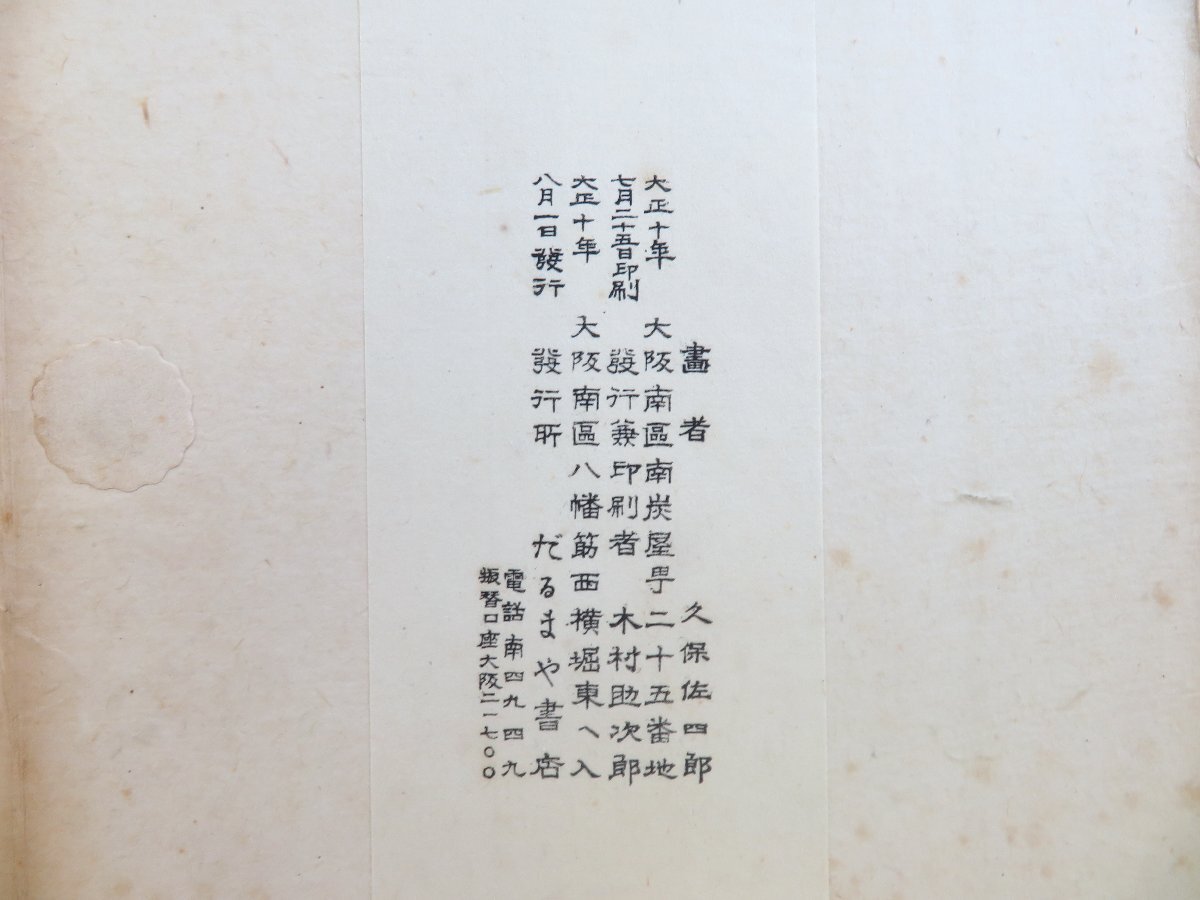 畫者 久保佐四郎
大正十年 大阪南區南炭屋町二十五番地
七月二十五日印刷 發行兼印刷者 木村助次郎
大正十年 大阪南區八幡筋西横堀東へ入
八月一日發行 發行所 だるまや書店
電話南四九四九
振替口座大阪二一七〇〇